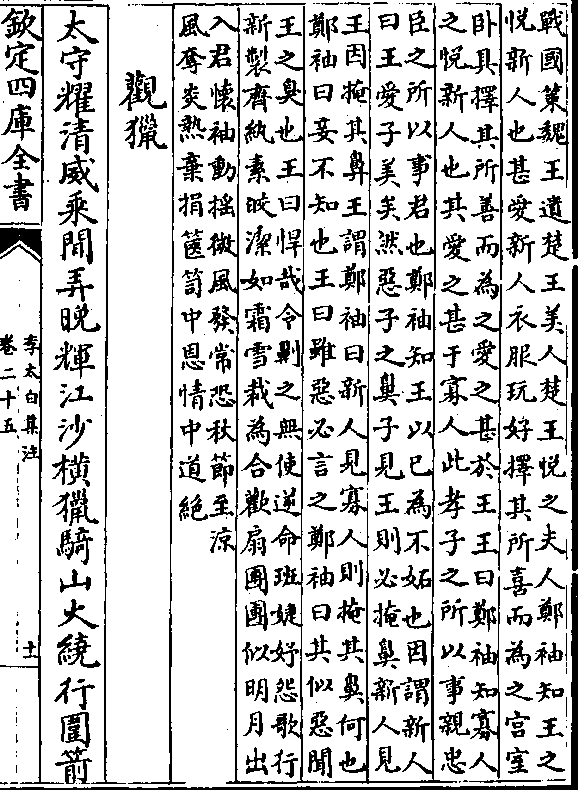 戰國策魏王遺楚王美人楚王悦之夫人鄭袖知王之
悦新人也甚愛新人衣服玩好擇其所喜而為之宫室
卧具擇其所善而為之愛之甚於王王曰鄭袖知寡人
之悦新人也其愛之甚于寡人此孝子之所以事親忠
臣之所以事君也鄭袖知王以已為不妬也因謂新人
曰王愛子美矣然惡子之鼻子見王則必掩鼻新人見
王因掩其鼻王謂鄭袖曰新人見寡人則掩其鼻何也
鄭袖曰妾不知也王曰雖惡必言之鄭袖曰其似惡聞
王之臭也王曰悍哉令劓之無使逆命班婕妤怨歌行
新製齊紈素皎潔如霜雪裁為合歡扇團團似明月出
入君懷袖動揺微風發常恐秋節至涼
風奪炎熱棄捐篋笥中恩情中道絶
觀獵
太守耀清威乘閒弄晚輝江沙横獵騎山火繞行圍箭
欽定四庫全書
李太白集注
卷二十五
十一